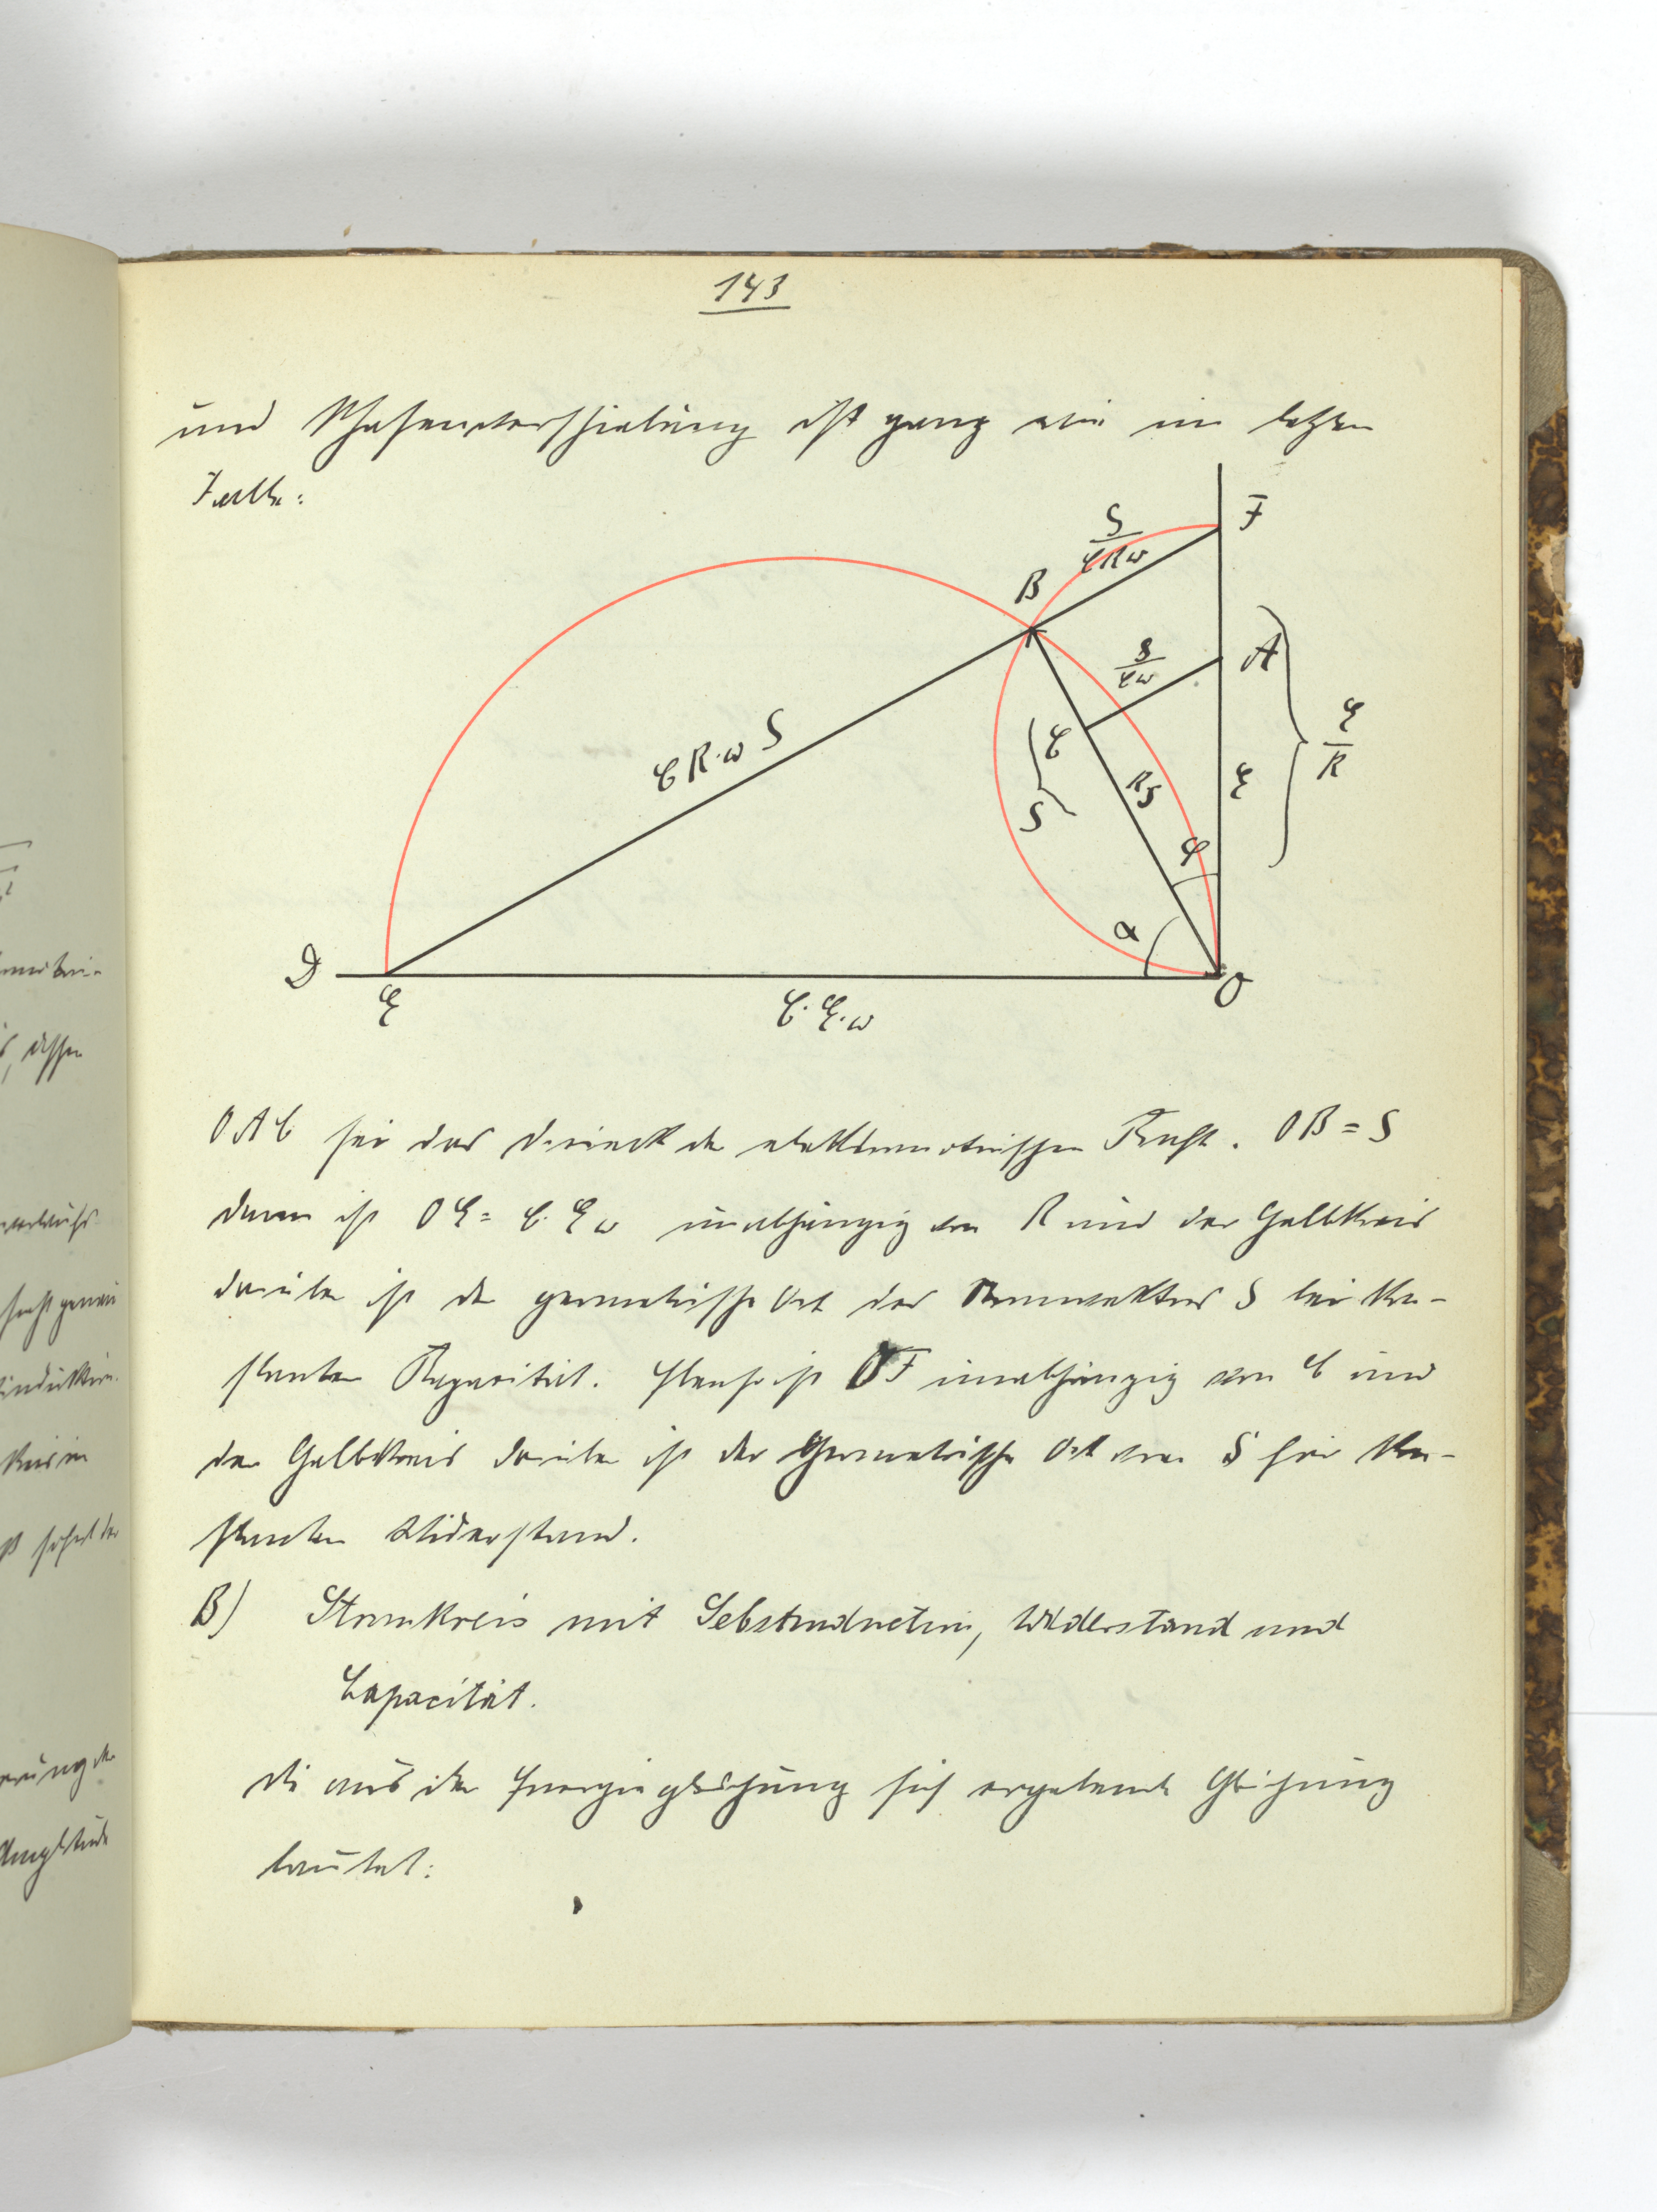 143
und Phasenverschiebung ist ganz wie im letzten
Falle:
F
S/CRω
B
S/Cω
A
E/R
CR·ω S
C
S
RS
E
φ
α
D
E
C·E·ω
O
OAC sei das Dreieck der elektromotorischen Kraft. OB = S
dann ist OE = C·Eω unabhängig von R und der Halbkreis
darüber ist der geometrische Ort des Stromvektors S bei kon-
stanter Kapazität. Ebenso ist OF unabhängig von C und
der Halbkreis darüber ist der Geometrische Ort von S für kon-
stanten Widerstand.
B) Stromkreis mit Sebstinduction, Widerstand und
Capacität.
Die aus der Energiegleichung sich ergebende Gleichung
lautet: